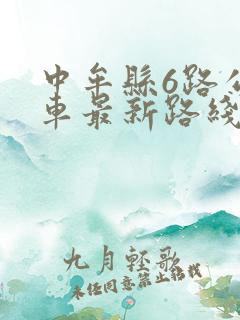 中牟縣6路公
車最新路綫
九月輕歌
未经同意禁止转载